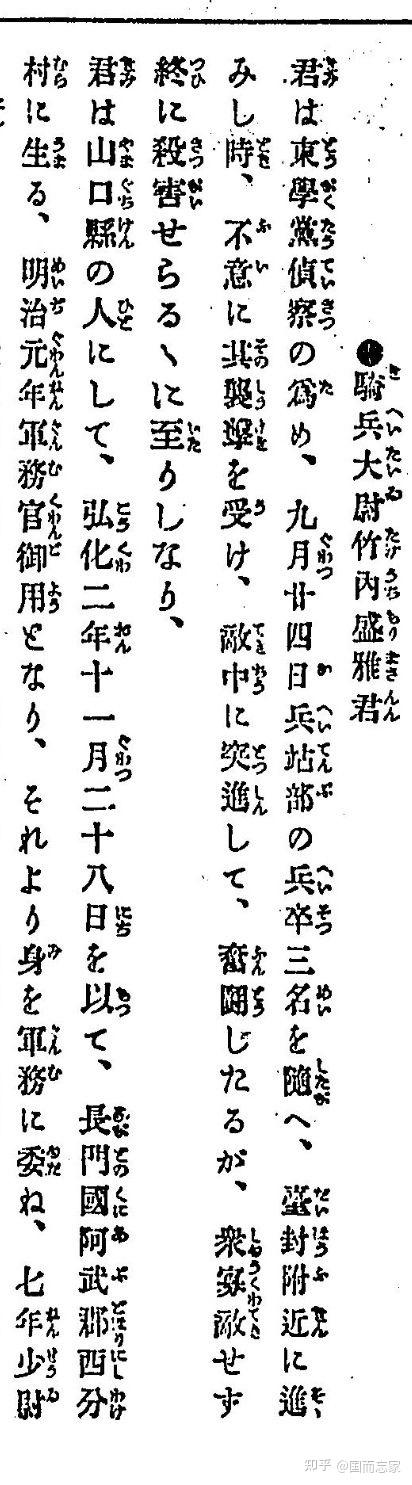 騎兵大尉竹內盛雅君
君は東學黨偵察の爲め、九月廿四日兵站部の兵卒三名を隨へ、臺封附近に進
みし時、不意に其襲擊を受け、敵中に突進して、奮鬪したるが、衆寡敵せず
終に殺害せらるゝに至りしなり、
君は山口縣の人にして、弘化二年十一月二十八日を以て、長門國阿武郡西分
村に生る、明治元年軍務官御用となり、それより身を軍務に委ね、七年少尉
知乎 @国而忘家